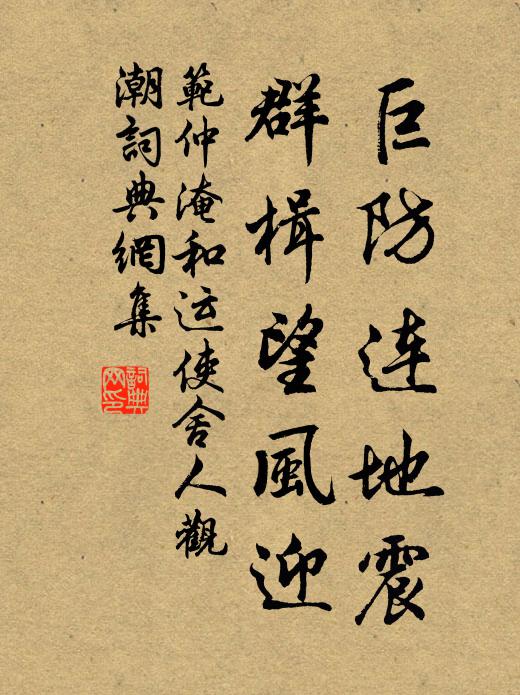 巨防连地震
群楫望風迎
範仲淹和运使舍人觀
潮詞典網集
詞典
网印